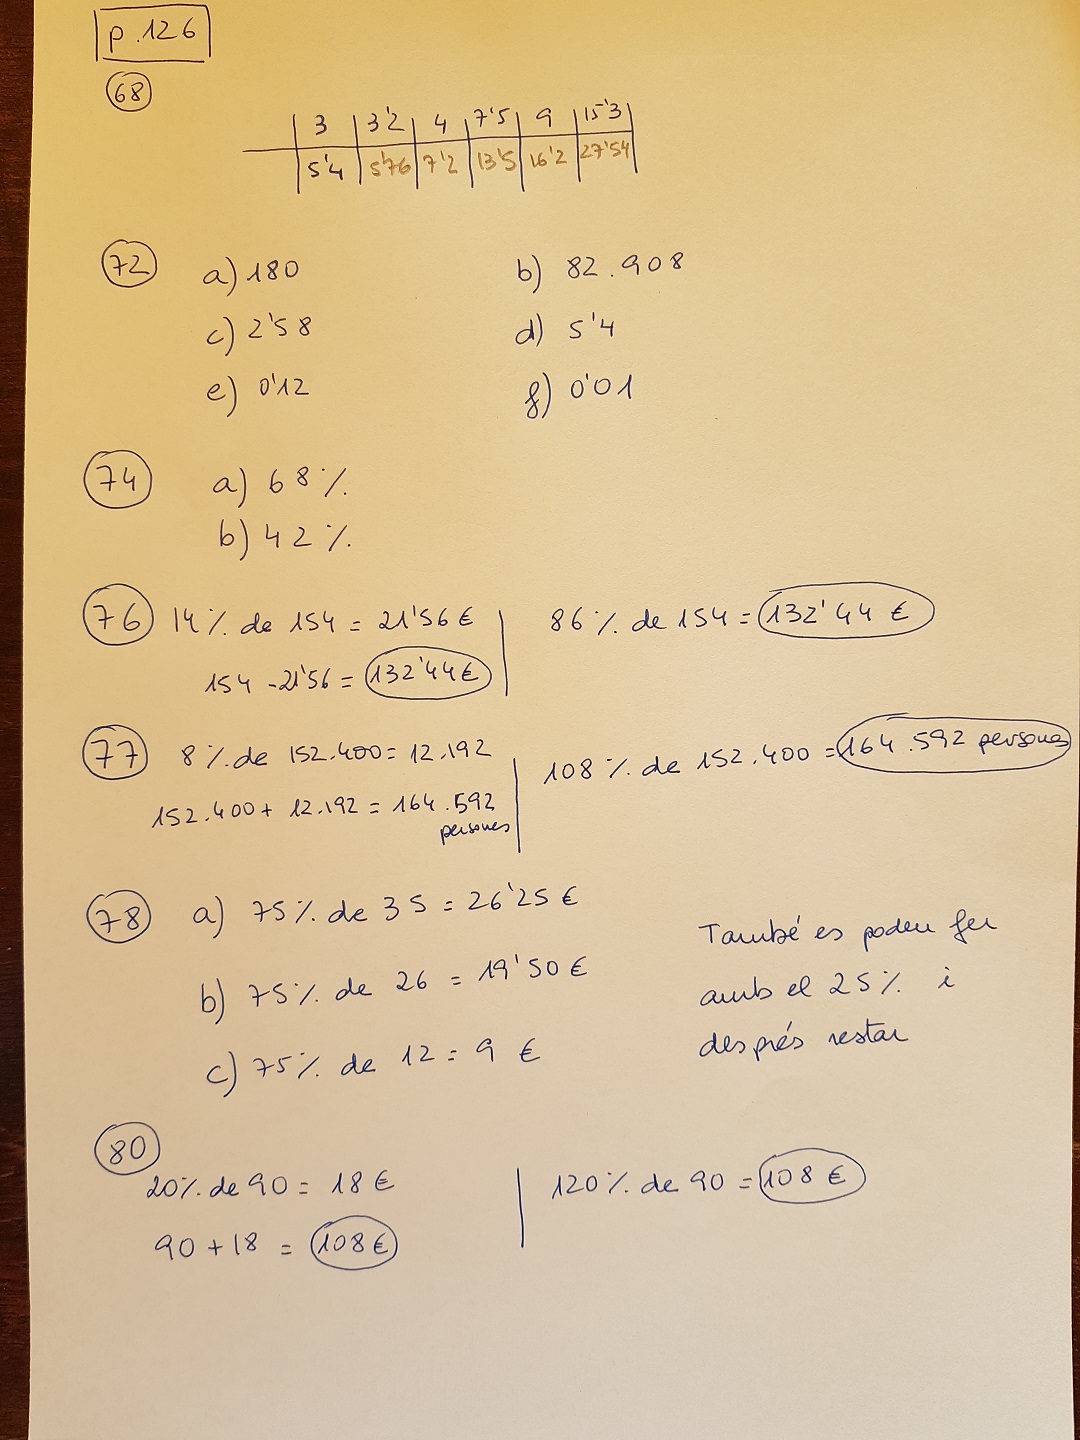 p.126
68
3 3'2 4 7'5 9 15'3
5'4 5'76 7'2 13'5 16'2 27'54
72 a) 180 b) 82.908
c) 2'58 d) 5'4
e) 0'12 f) 0'01
74 a) 68%
b) 42%
76 14% de 154 = 21'56 € 86% de 154 = 132'44 €
154 - 21'56 = 132'44 €
77 8% de 152.400 = 12.192 108% de 152.400 = 164.592 persones
152.400 + 12.192 = 164.592
persones
78 a) 75% de 35 = 26'25 €
b) 75% de 26 = 19'50 €
c) 75% de 12 = 9 €
També es poden fer
amb el 25% i
després restar
80
20% de 90 = 18 € 120% de 90 = 108 €
90 + 18 = 108 €